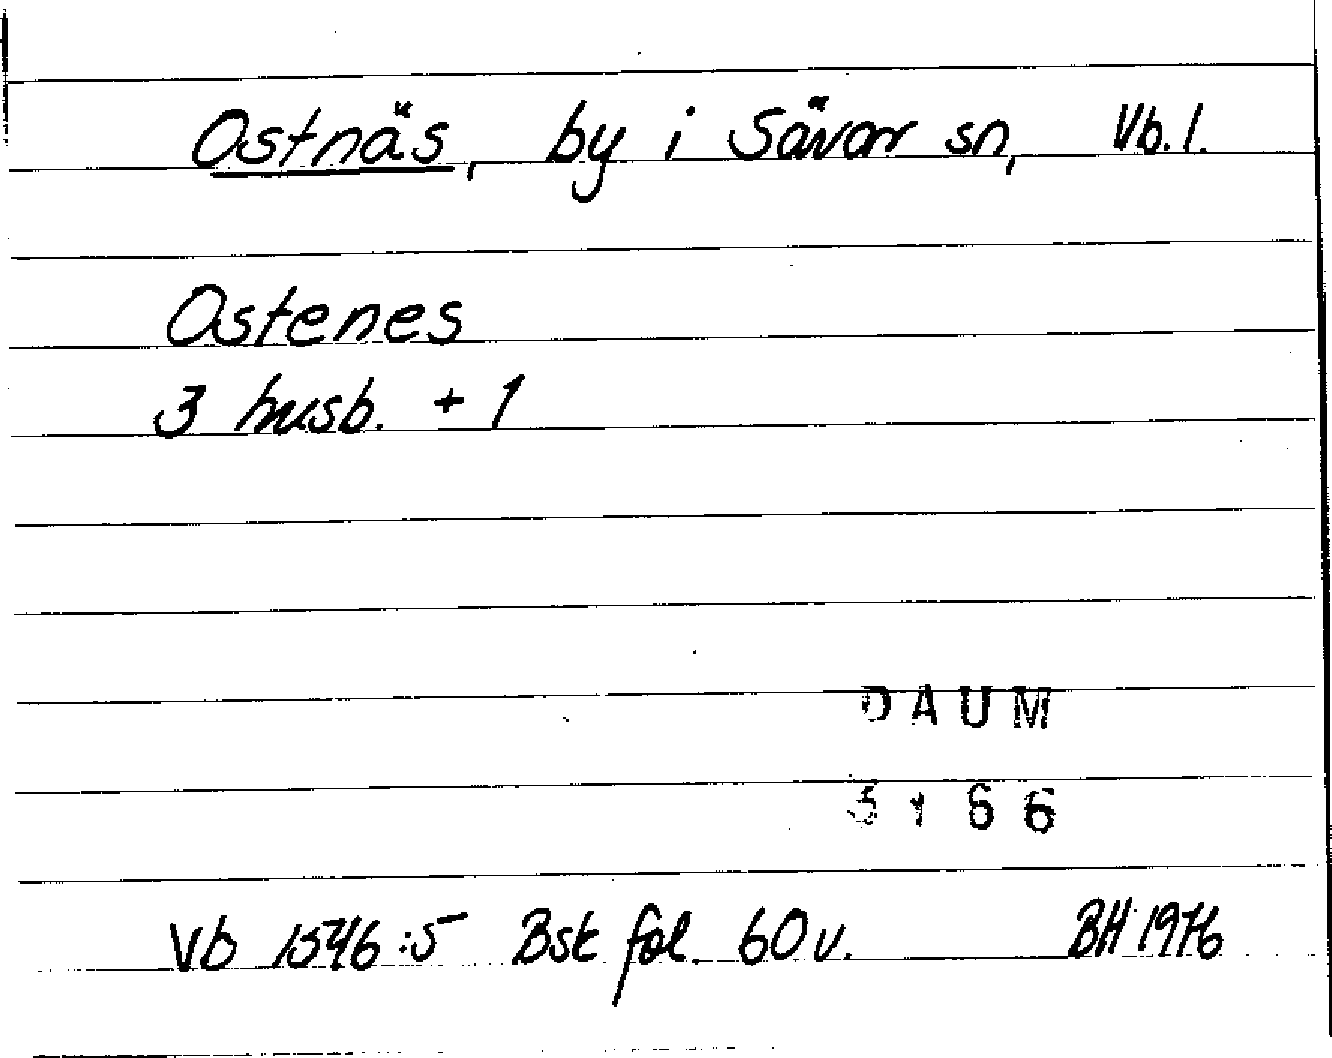 Ostnäs, by i Sävar sn, Vb. l.
Ostenes
3 husb. + 1
DAUM
Vb 1546:5 Bsk fol. 60v. BH 1976